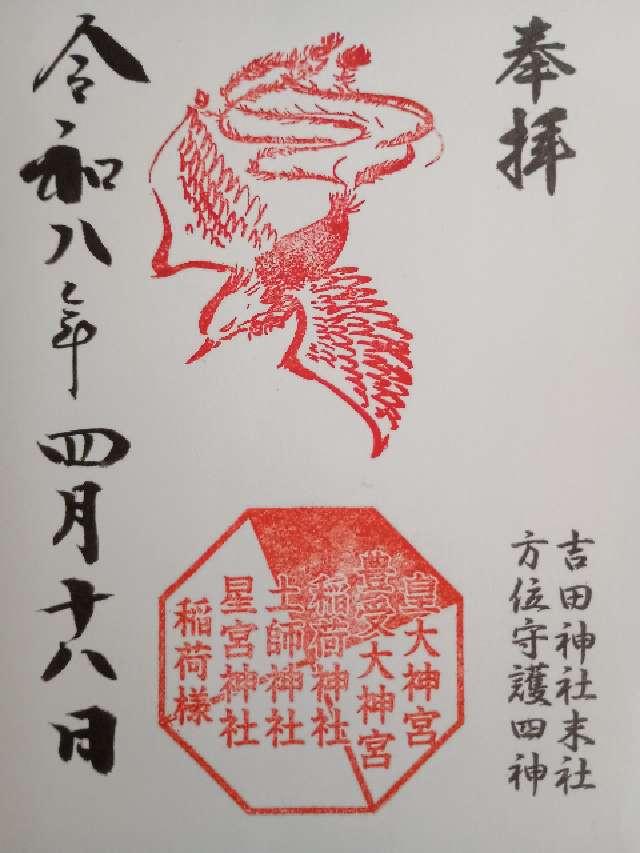 奉拝
吉田神社末社
方位守護四神
皇大神宮
豊受大神宮
稲荷神社
土師神社
星宮神社
稲荷様
令和八年四月十八日